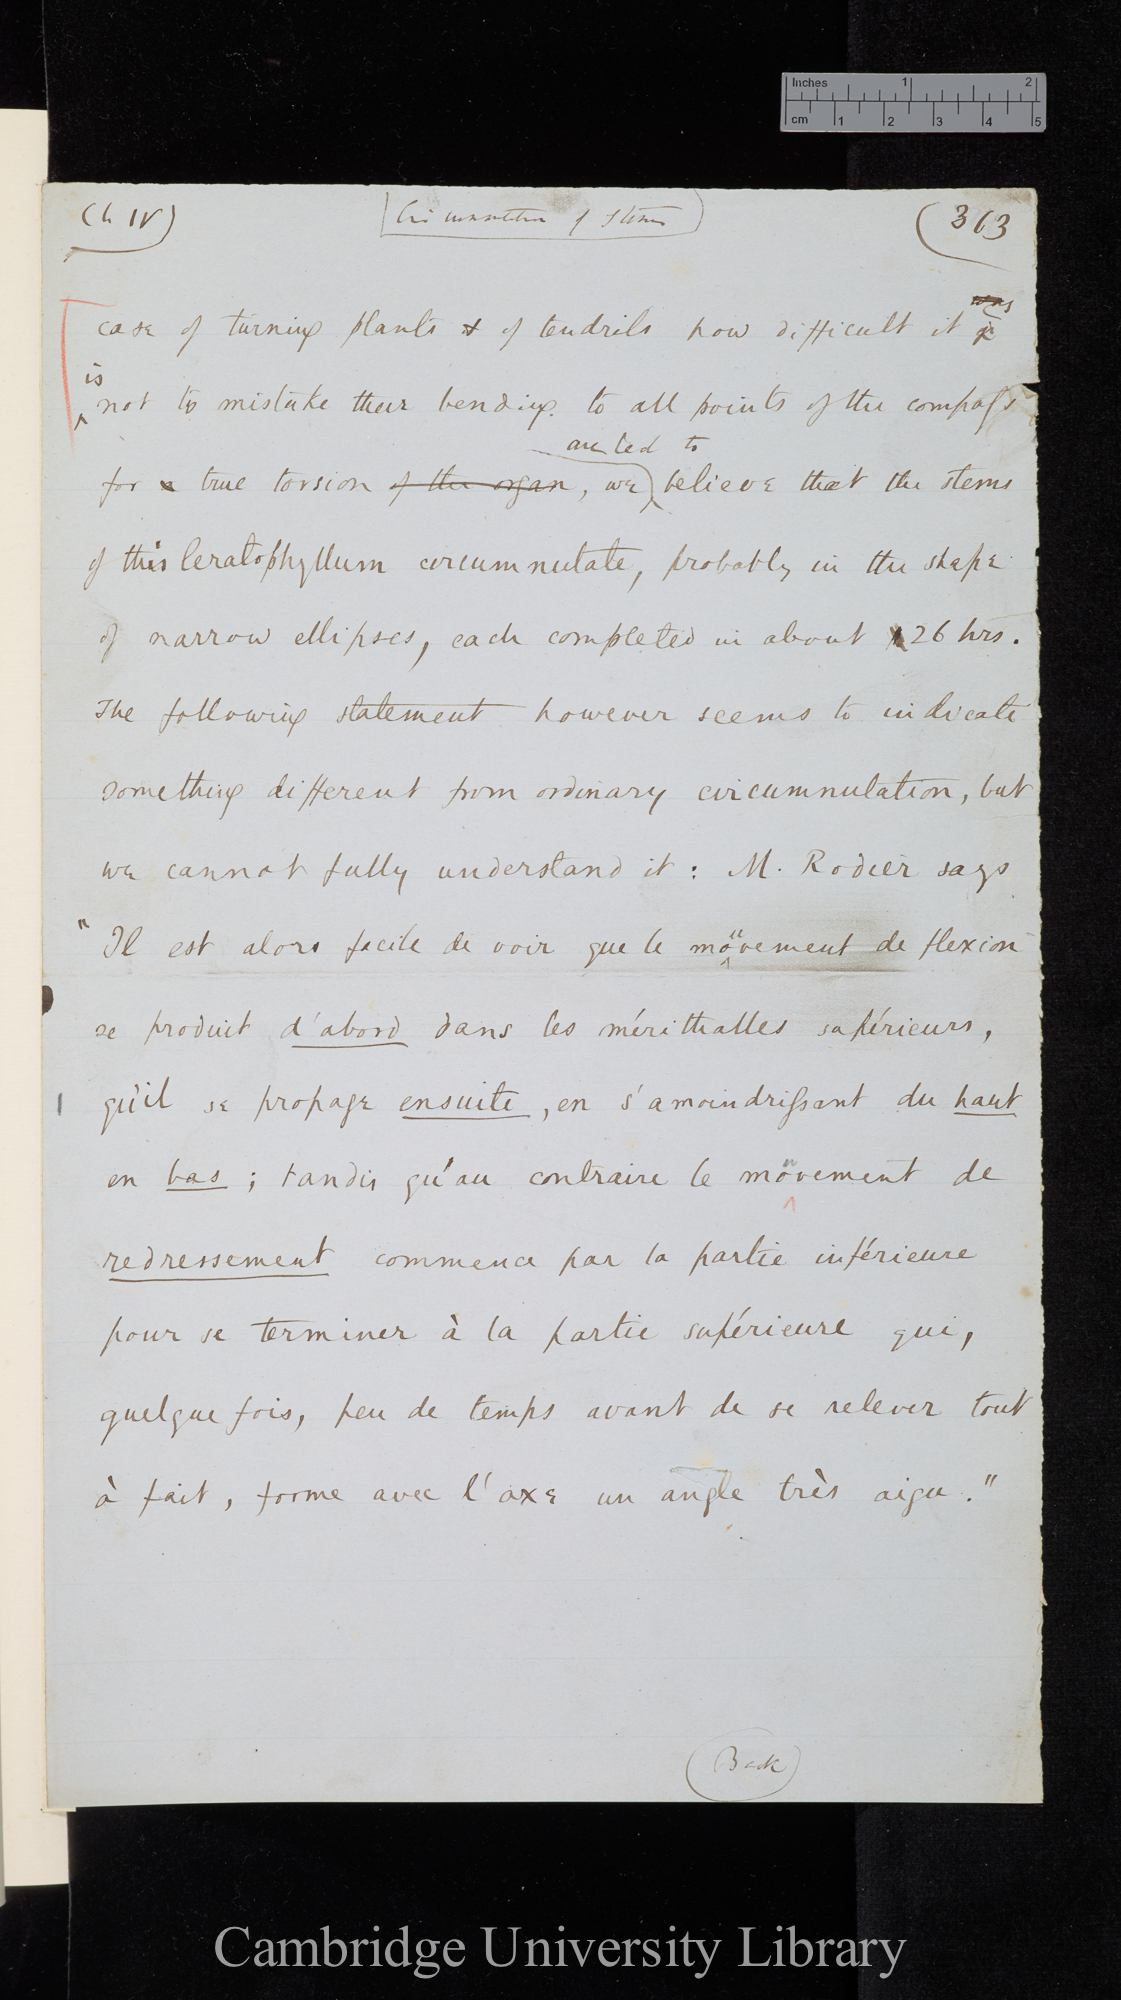 Inches 1 2
cm 1 2 3 4 5
(Ch IV)
Circumnutation of Stems
(363
was
case of turning plants & of tendrils how difficult it is
is
not to mistake their bending to all points of the compass
are led to
for a true torsion of the organ, we believe that the stems
of this Ceratophyllum circumnutate, probably in the shape
of narrow ellipses, each completed in about 26 hrs.
The following statement however seems to indicate
something different from ordinary circumnutation, but
we cannot fully understand it: M. Rodier says
"Il est alors facile de voir que le mouvement de flexion
se produit d'abord dans les mérithalles supérieurs,
qu'il se propage ensuite, en s'amoindrissant du haut
en bas; tandis qu'au contraire le mouvement de
redressement commence par la partie inférieure
pour se terminer à la partie supérieure qui,
quelquefois, peu de temps avant de se relever tout
à fait, forme avec l'axe un angle très aigu."
(Back)
Cambridge University Library